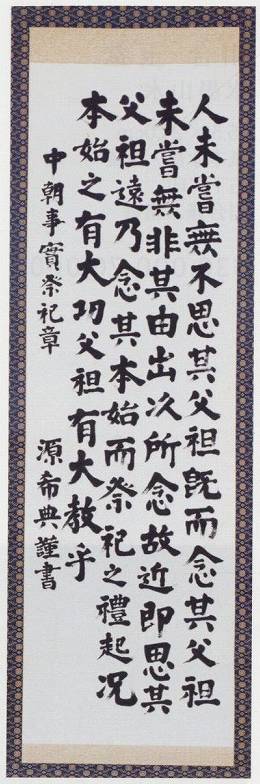 人未嘗無不思其父祖既而念其父祖
未嘗無非其由出次所念故近即思其
父祖遠乃念其本始而祭祀之禮起况
本始之有大功父祖有大教乎
中朝事實祭祀章 源希典謹書